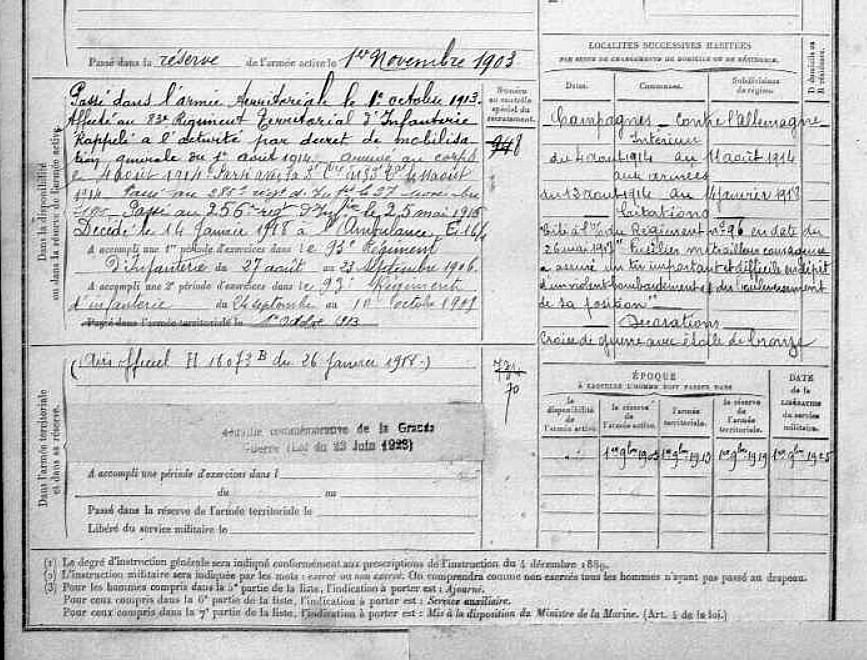 Passé dans la réserve de l'armée active le 1er Novembre 1903
Dans la disponibilité
ou dans la réserve de l'armée active.
Passé dans l'armée territoriale le 1er octobre 1913.
Affecté au 83e Régiment Territorial d'Infanterie
Rappelé à l'activité par décret de mobilisa-
tion générale du 1er août 1914. au corps
le 4 août 1914
1914 Passé au 285e régt d'Inf le 27
Passé au 256e régt d'Inf le 25 mai 1916
Décédé le 14 Janvier 1918 à l'Ambulance
A accompli une 1re période d'exercices dans le 93e Régiment
d'Infanterie du 27 août au 23 Septembre 1906.
A accompli une 2e période d'exercices dans le 93e Régiment
d'infanterie du 24 septembre au 10 octobre 1909
Passé dans l'armée territoriale le 1er Octobre 1913
Numéro
au contrôle
spécial du
recrutement.
948
Dans l'armée territoriale
et dans sa réserve.
(Avis officiel H 16073 B du 26 janvier 1918.)
70
médaille commémorative de la Grande
Guerre (Loi du 23 Juin 1923)
A accompli une période d'exercices dans l
du au
Passé dans la réserve de l'armée territoriale le
Libéré du service militaire le
LOCALITÉS SUCCESSIVES HABITÉES
PAR SUITE DE CHANGEMENTS DE DOMICILE OU DE RÉSIDENCE.
Dates. Communes. Subdivisions
de région.
D domicile ou
R résidence.
Campagnes contre l'allemagne
Intérieur
du 4 août 1914 au 11 août 1914
aux armées
du 12 août 1914 au 14 janvier 1918
Citations
Cité à l'o/ du Régiment n° 96 en date du
26 mai 1917 "Fusilier mitrailleur courageux
a assuré un tir important et difficile en dépit
d'un violent bombardement et du bouleversement
de sa position"
Décorations
Croix de guerre avec étoile de bronze
ÉPOQUE
À LAQUELLE L'HOMME DOIT PASSER DANS
DATE
de la
LIBÉRATION
du service
militaire.
la
disponibilité
de
l'armée active.
la réserve
de
l'armée active.
l'armée
territoriale.
la réserve
de
l'armée
territoriale.
1er 9bre 1903 1er 9bre 1913 1er 9bre 1919 1er 9bre 1925
(1) Le degré d'instruction générale sera indiqué conformément aux prescriptions de l'instruction du 4 décembre 1889.
(2) L'instruction militaire sera indiquée par les mots : exercé ou non exercé. On comprendra comme non exercés tous les hommes n'ayant pas passé au drapeau.
(3) Pour les hommes compris dans la 5e partie de la liste, l'indication à porter est : Ajourné.
Pour ceux compris dans la 6e partie de la liste, l'indication à porter est : Service auxiliaire.
Pour ceux compris dans la 7e partie de la liste, l'indication à porter est : Mis à la disposition du Ministre de la Marine. (Art. 4 de la loi.)